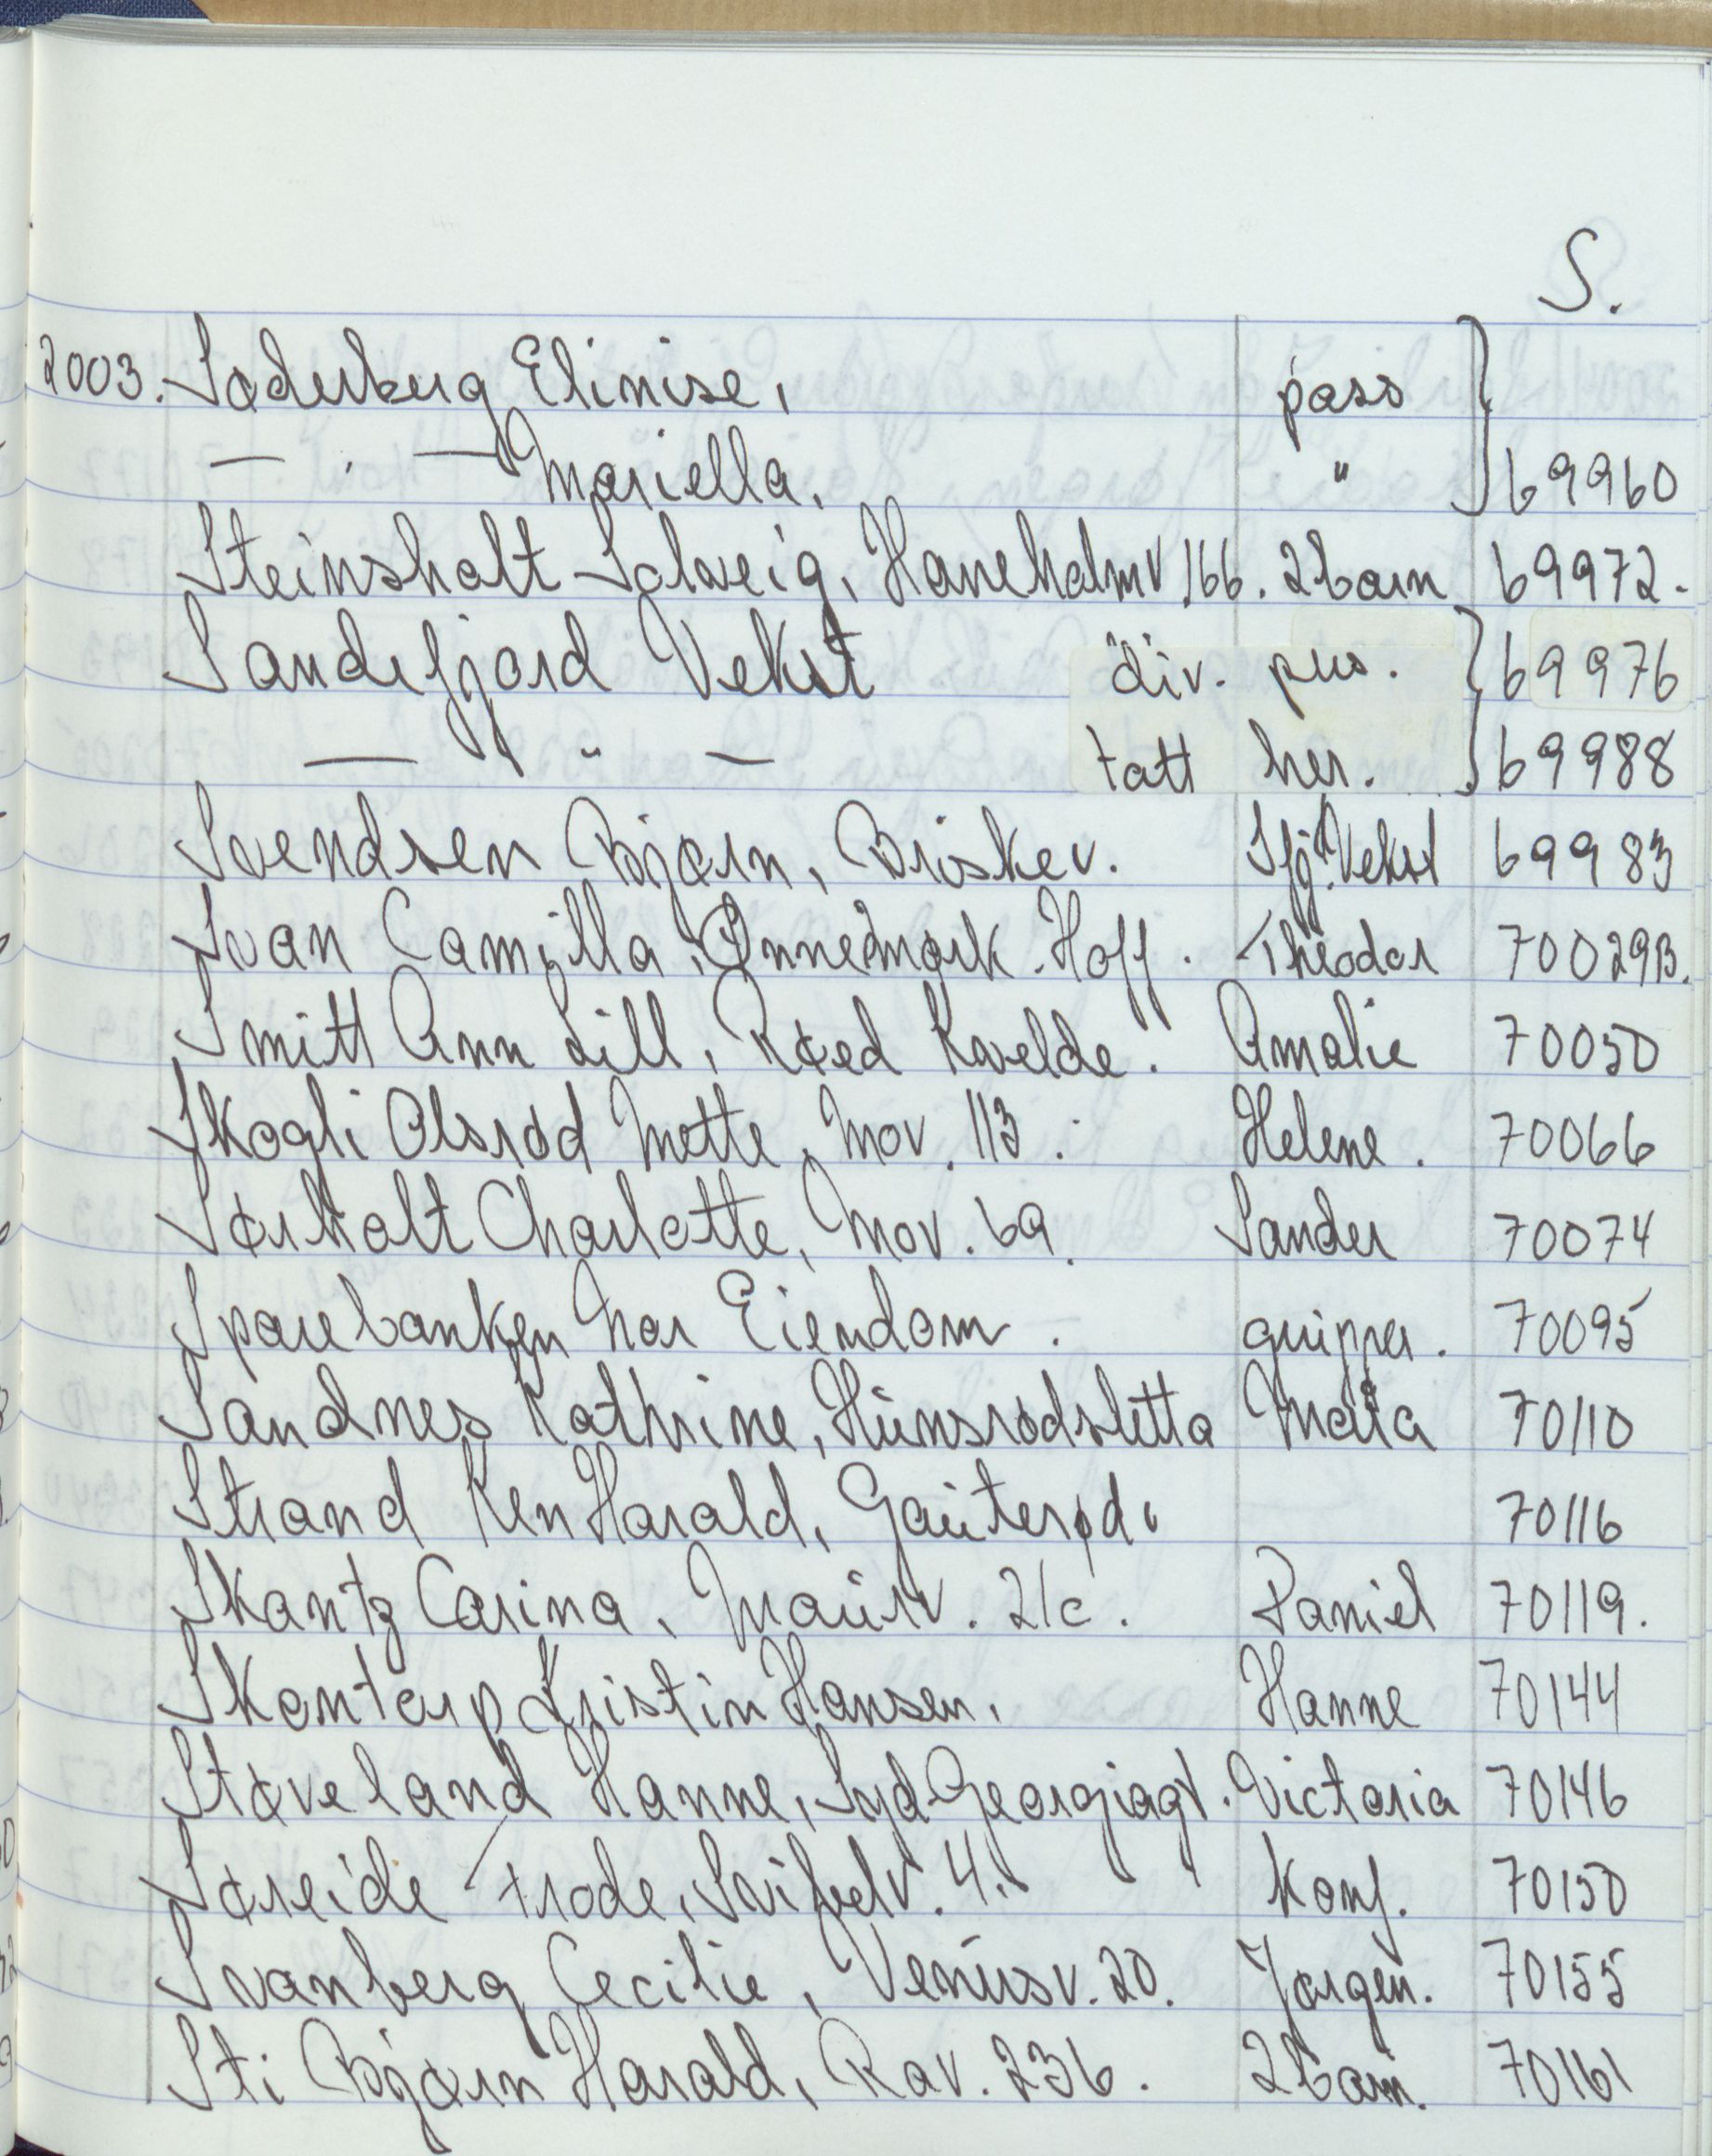 S.
2003. Søderberg Elinise, pass
— . — Mariella. " 69960
Steinsholt Solveig, Haneholmv 166. 2 barn 69972.
Sandefjord Vekst div. pers. 69976
— " — tatt her. 69988
Svendsen Bjørn, Briskev. Sfj. Vekst 69983
Svan Camilla, Ønnemark. Hoff. Theodor 70029B.
Smitt Ann Lill, Røed Kvelde. Amalie 70050
Skogli Olsrød Mette, Mov. 113. Helene. 70066
Sørholt Charlotte, Mov. 69. Sander 70074
Sparebanken Nor Eiendom. gruppe. 70095
Sandnes Kathrine, Hunsrødsletta Maia 70110
Strand Ken Harald, Gauterød. 70116
Skantz Carina, Maurv. 21c. Daniel 70119.
Skontorp Kristin Hansen, Hanne 70144
Støveland Hanne, Syd Georgiagt. Victoria 70146
Søreide Frode, 4. Konf. 70150
Svanberg Cecilie, Venusv. 20. Jørgen. 70155
Sti Bjørn Harald, Rav. 236. 2 barn. 70161